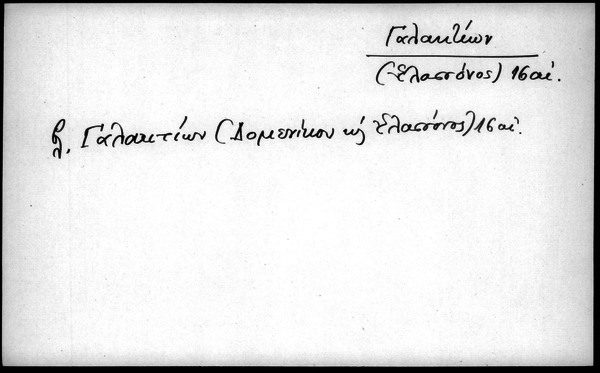 Γαλακτίων
(Ἐλασσόνος) 16 αἰ.
βλ. Γαλακτίων (Δομενίκου κ̀ Ἐλασσόνος) 16 αἰ.